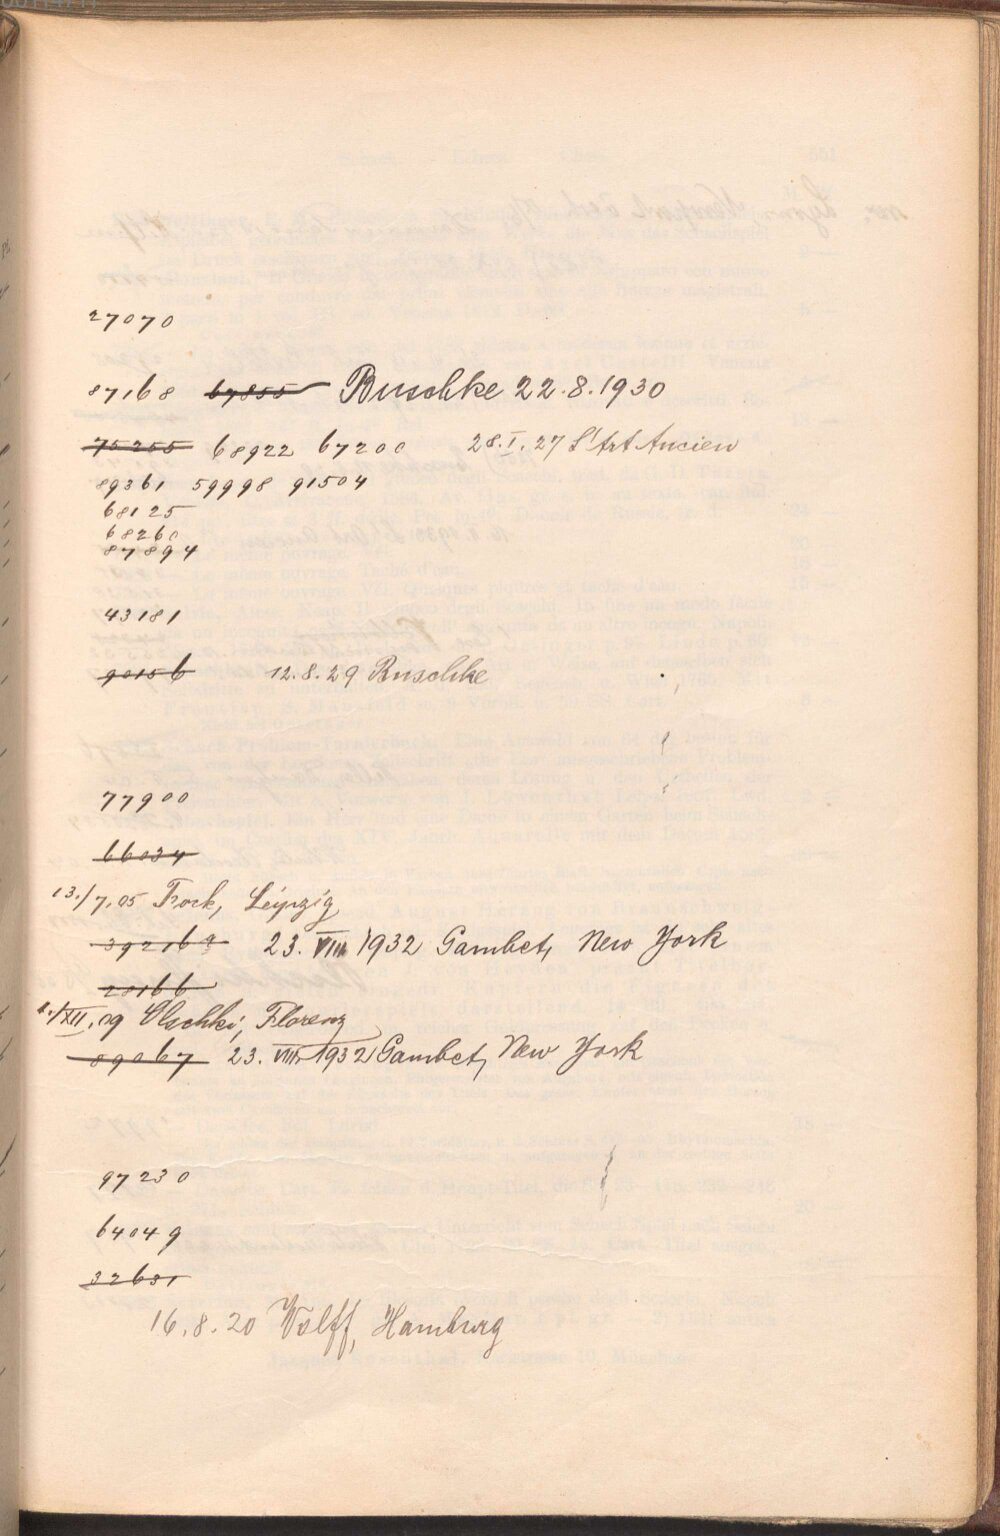 27070
87168 67855 Buschke 22.8.1930
75255 68922 67200 28.I.27 L'Art Ancien
89361 59998 91504
68125
68260
87894
43181
90156 12.8.29 Buschke
77900
66034
13./7.05 Fock, Leipzig
39216 23. VIII 1932 Gambet, New York
28166
/XII.09 Olschki, Florenz
89067 23. VIII. 1932 Gambet, New York
97230
64049
32631
16.8.20 Wolff, Hamburg